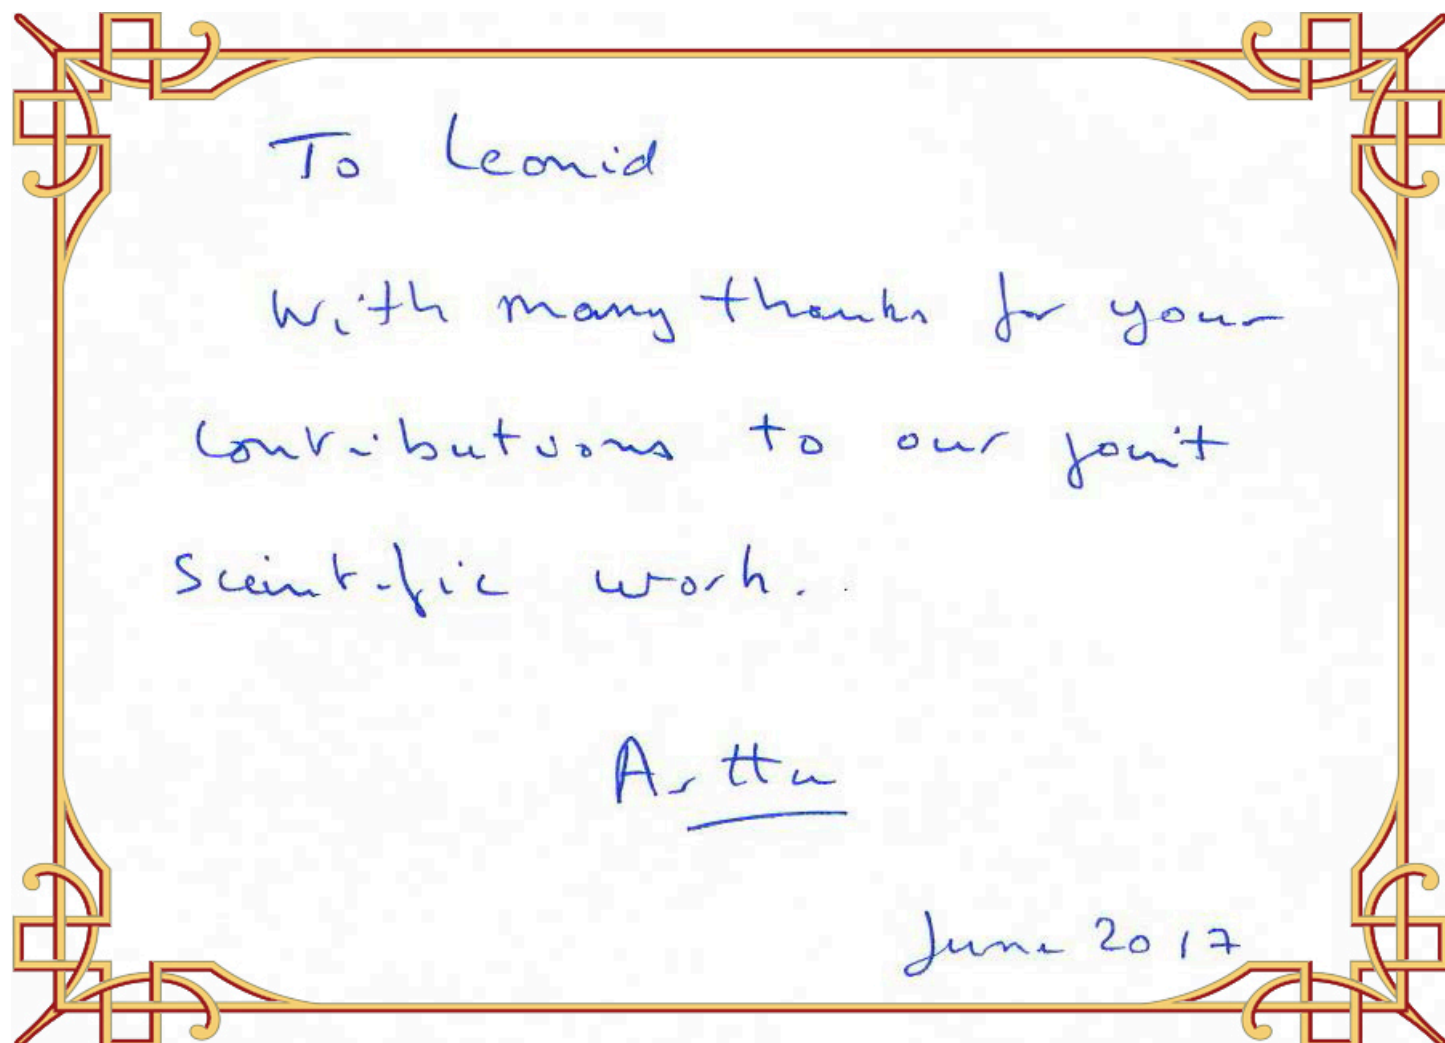 To Leonid
With many thanks for your
contributions to our joint
Scientific work.
June 2017